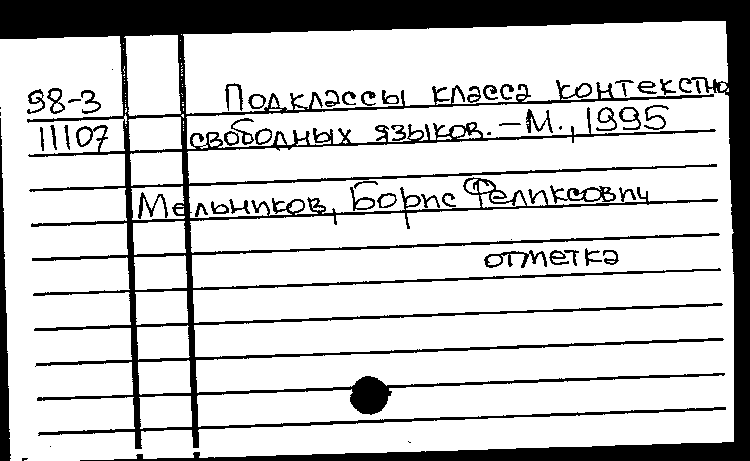 98-3 Подклассы класса контекстно
11107 свободных языков. – М., 1995
Мельников, Борис Феликсович
отметка